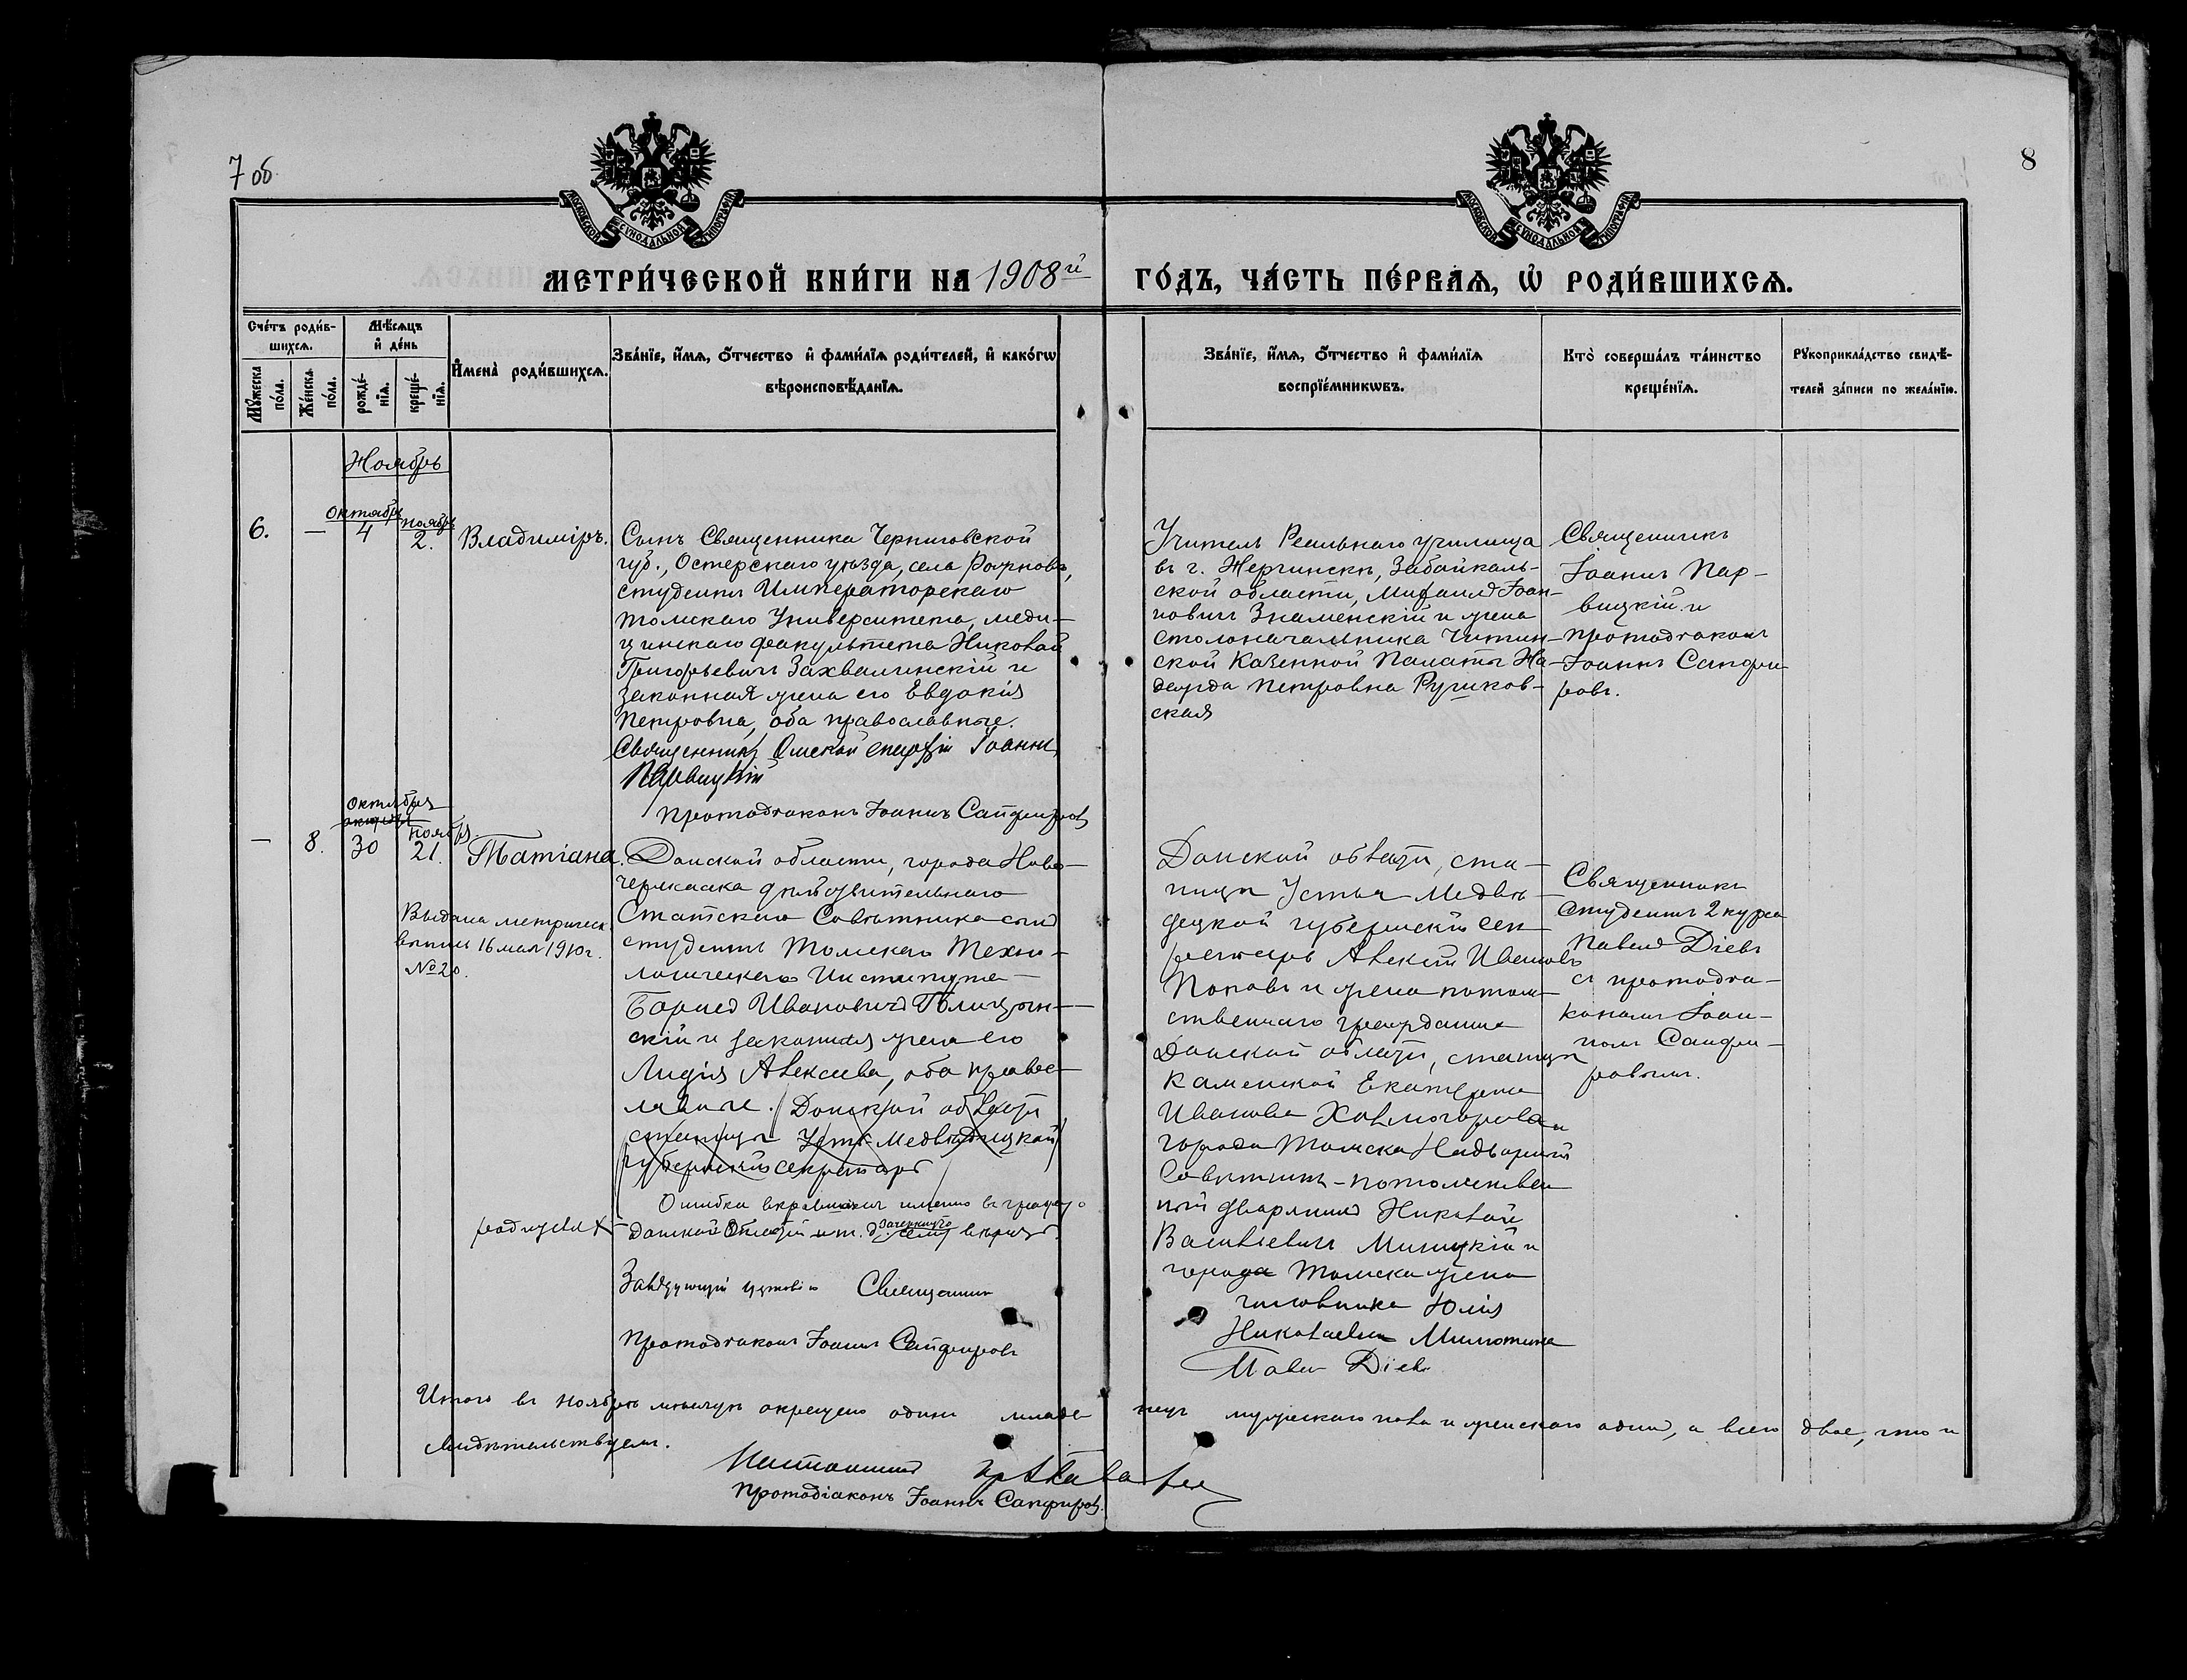 7 об
8
МОСКОВСКОЙ СѴНОДАЛЬНОЙ ТИПОГРАФІИ
МОСКОВСКОЙ СѴНОДАЛЬНОЙ ТИПОГРАФІИ
МЕТРИ́ЧЕСКОЙ КНИ́ГИ НА 1908й ГО́ДЪ, ЧА́СТЬ ПЕ́РВАѦ, Ѡ҆ РОДИ́ВШИХСѦ.
Сче́тъ роди́в-
шихсѧ.
Мꙋ́жеска по́ла.
Же́нска по́ла.
Мѣ́сѧцъ
и҆ де́нь
рожде́-
нїѧ.
креще́-
нїѧ.
И҆мена̀ роди́вшихсѧ.
Зва́нїе, и҆́мѧ, ѻ҆́тчество и҆ фами́лїѧ роди́телей, и҆ како́гѡ
вѣроисповѣ́данїѧ.
Зва́нїе, и҆́мѧ, ѻ҆́тчество и҆ фами́лїѧ
воспрїе́мникѡвъ.
Кто̀ соверша́лъ та́инство
креще́нїѧ.
Рꙋкоприкла́дство свидѣ́-
телей за́писи по жела́нїю.
Ноябрь
6.
—
Октябрь
4
ноябрь
2.
Владиміръ.
Сынъ Священника Черниговской
губ., Остерскаго уѣзда, села
студентъ Императорскаго
Томскаго Университета, меди-
цинскаго факультета Николай
Григорьевичъ Захвалинскій и
законная жена его Евдокія
Петровна, оба православные.
Священникъ Омской епархіи Іоаннъ
Парвицкій
протодіаконъ Іоаннъ Сапфировъ
Учитель Реальнаго училища
въ г. Нерчинскѣ, Забайкаль-
ской области, Михаилъ Іоан-
новичъ Знаменскій и жена
столоначальника Читин-
ской Казенной Палаты На-
дежда Петровна Ружков-
ская
Священникъ
Іоаннъ Пар-
вицкій и
протодіаконъ
Іоаннъ Сапфи-
ровъ.
—
8.
октября
30
ноября
21.
Татіана.
Выдана метрическ.
выпись 16 мая 1910 г.
№ 20.
Донской области, города Ново-
черкасска дѣйствительнаго
Статскаго Совѣтника сынъ
студентъ Томскаго Техно-
логическаго Института
Борисъ Ивановичъ
скій и законная жена его
Лидія Алексѣева, оба правос-
лавные. Донской области
станицы Усть-Медвѣдицкой
губернскій секретарь
Ошибка вкравшаяся именно въ графу о
родителях Донской области и т. д. зачеркнуто
Завѣдующій церковію Священникъ
Протодіаконъ Іоаннъ Сапфировъ
Донской области, ста-
ницы Усть Медвѣ-
децкой губернскій сек-
ретарь Алексѣй Ивановъ
Поповъ и жена потом-
ственнаго гражданина
Донской области, станицы
Каменской Екатерина
Иванова Холмогорова и
города Томска Надворный
Совѣтникъ - потомствен
ный дворянинъ Николай
Васильевичъ и
города Томска жена
чиновника Юлія
Николаевна Милютина
Павелъ Діевъ
Священникъ
студентъ 2 курса
Павелъ Діевъ
съ протодіа-
кономъ Іоан-
номъ Сапфи-
ровымъ.
Итого въ ноябрѣ мѣсяцѣ окрещено одинъ младе нецъ мужескаго пола и женскаго одинъ, а всего двое, что и
свидѣтельствуемъ.
протодіаконъ Іоаннъ Сапфировъ.